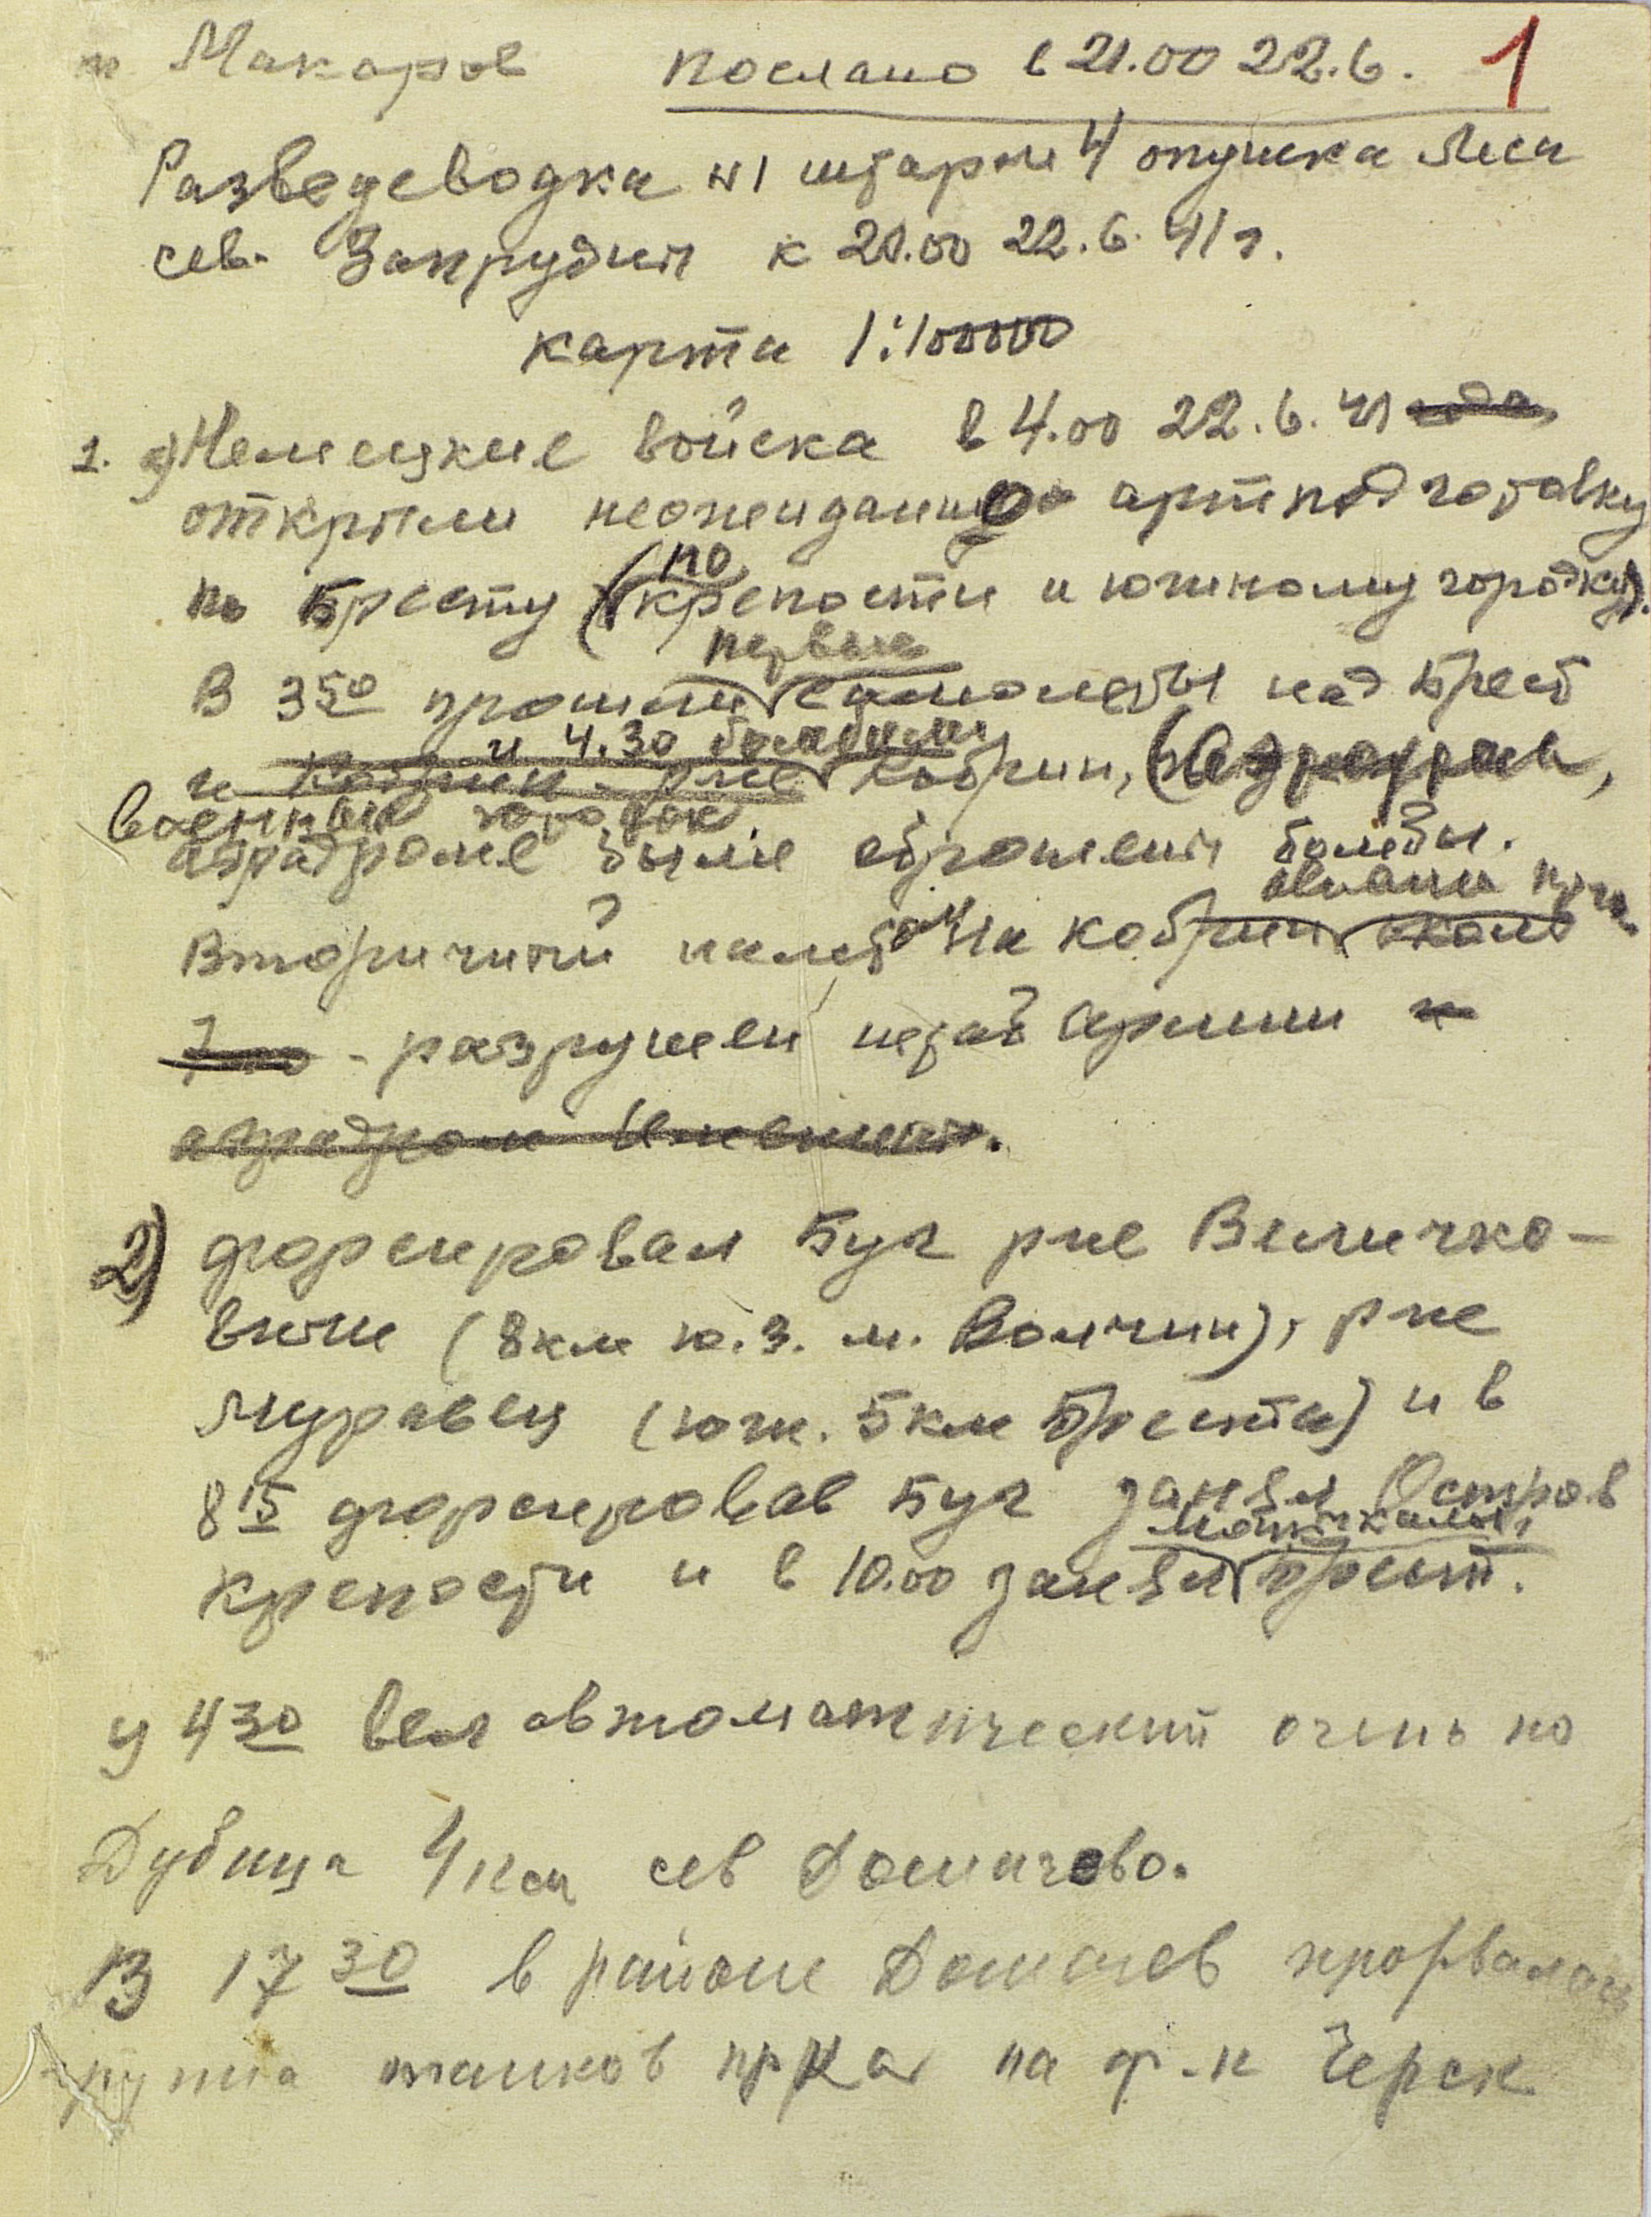 т Макаров послано в 21.00 22.6. 1
Разведсводка №1 штарм 4 опушка леса
сев. Запруды к 20.00 22.6.41 г.
карта 1:100000
1. а) Немецкие войска в 4.00 22.6.41 года
открыли неожиданно артподготовку
по
по Бресту (крепости и южному городку).
первые
В 3 50 прошли самолеты над Брест
и 4.30 бомбили
и Кобрин р-не Кобрин, (Аэродром,
военный городок
аэродроме были сброшены бомбы.
авиации прот
Вторичный налет на Кобрин около
7 разрушен штаб Армии и
аэродром
2) форсировал Буг р-не Величко-
вичи (8 км ю.з. м. Волчин), р-не
Муравец (юж. 5 км Бреста) и в
8 15 форсировав Буг занял Остров
крепости и в 10.00 занял Брест.
у 4 30 вел автоматический огонь по
Дубица 4 км сев Домачево.
В 17 30 в районе Домачев прорвалась
группа танков пр-ка на ф-к Черск